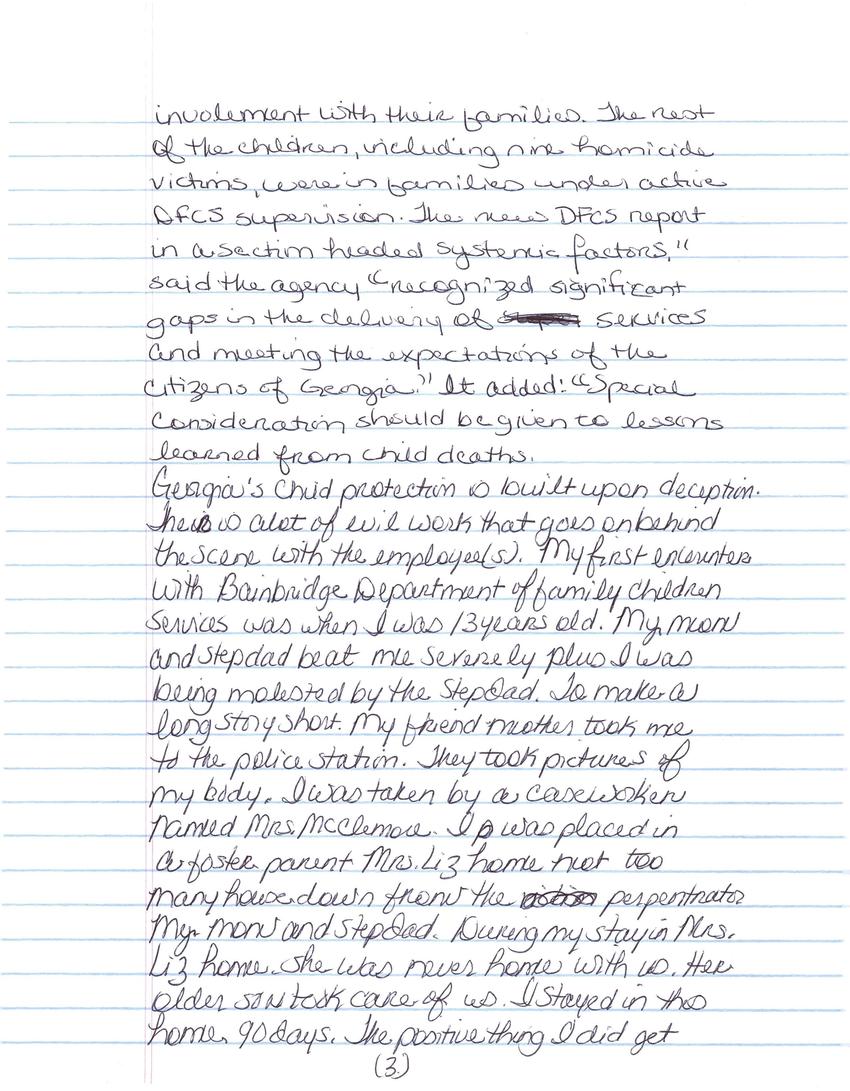 involement with their families. The rest
of the children, including nine homicide
victims, were in families under active
DFCS supervision. The new DFCS report
in a section headed systemic factors,"
said the agency "recognized significant
gaps in the delivery of services
and meeting the expectations of the
citizens of Georgia." It added: "Special
Consideration should be given to lessons
learned from child deaths.
Georgia's Child protection is built upon deception.
There is alot of evil work that goes on behind
the scene with the employee(s). My first encounter
with Bainbridge Department of family children
Services was when I was 13 years old. My mom
and stepdad beat me severely plus I was
being molested by the StepDad. To make a
long story short. My friend mother took me
to the police station. They took pictures of
my body. I was taken by a caseworker
named Mrs. McClemore. I was placed in
a foster parent Mrs. Liz home not too
many house down from the perpentrator
My mom and StepDad. During my stay in Mrs.
Liz home. She was never home with us. Her
older son took care of us. I stayed in the
home 90 days. The positive thing I did get
(3.)